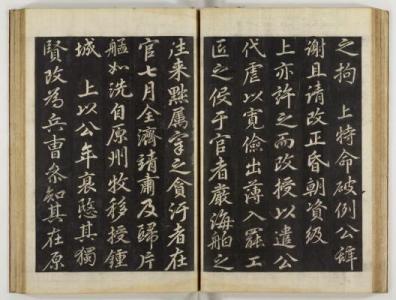 之拘　上特命破例公辭
謝且請改正昏朝資級
上亦許之而改授以遣公
代虐以寬儉出薄入罷工
匠之侵于官者嚴海舶之
往来黜属宰之貪汙者在
官七月全濟靖肅及歸片
艋如洗自原州牧移授鍾
城　上以公年衰愍其獨
賢改為兵曹叅知其在原